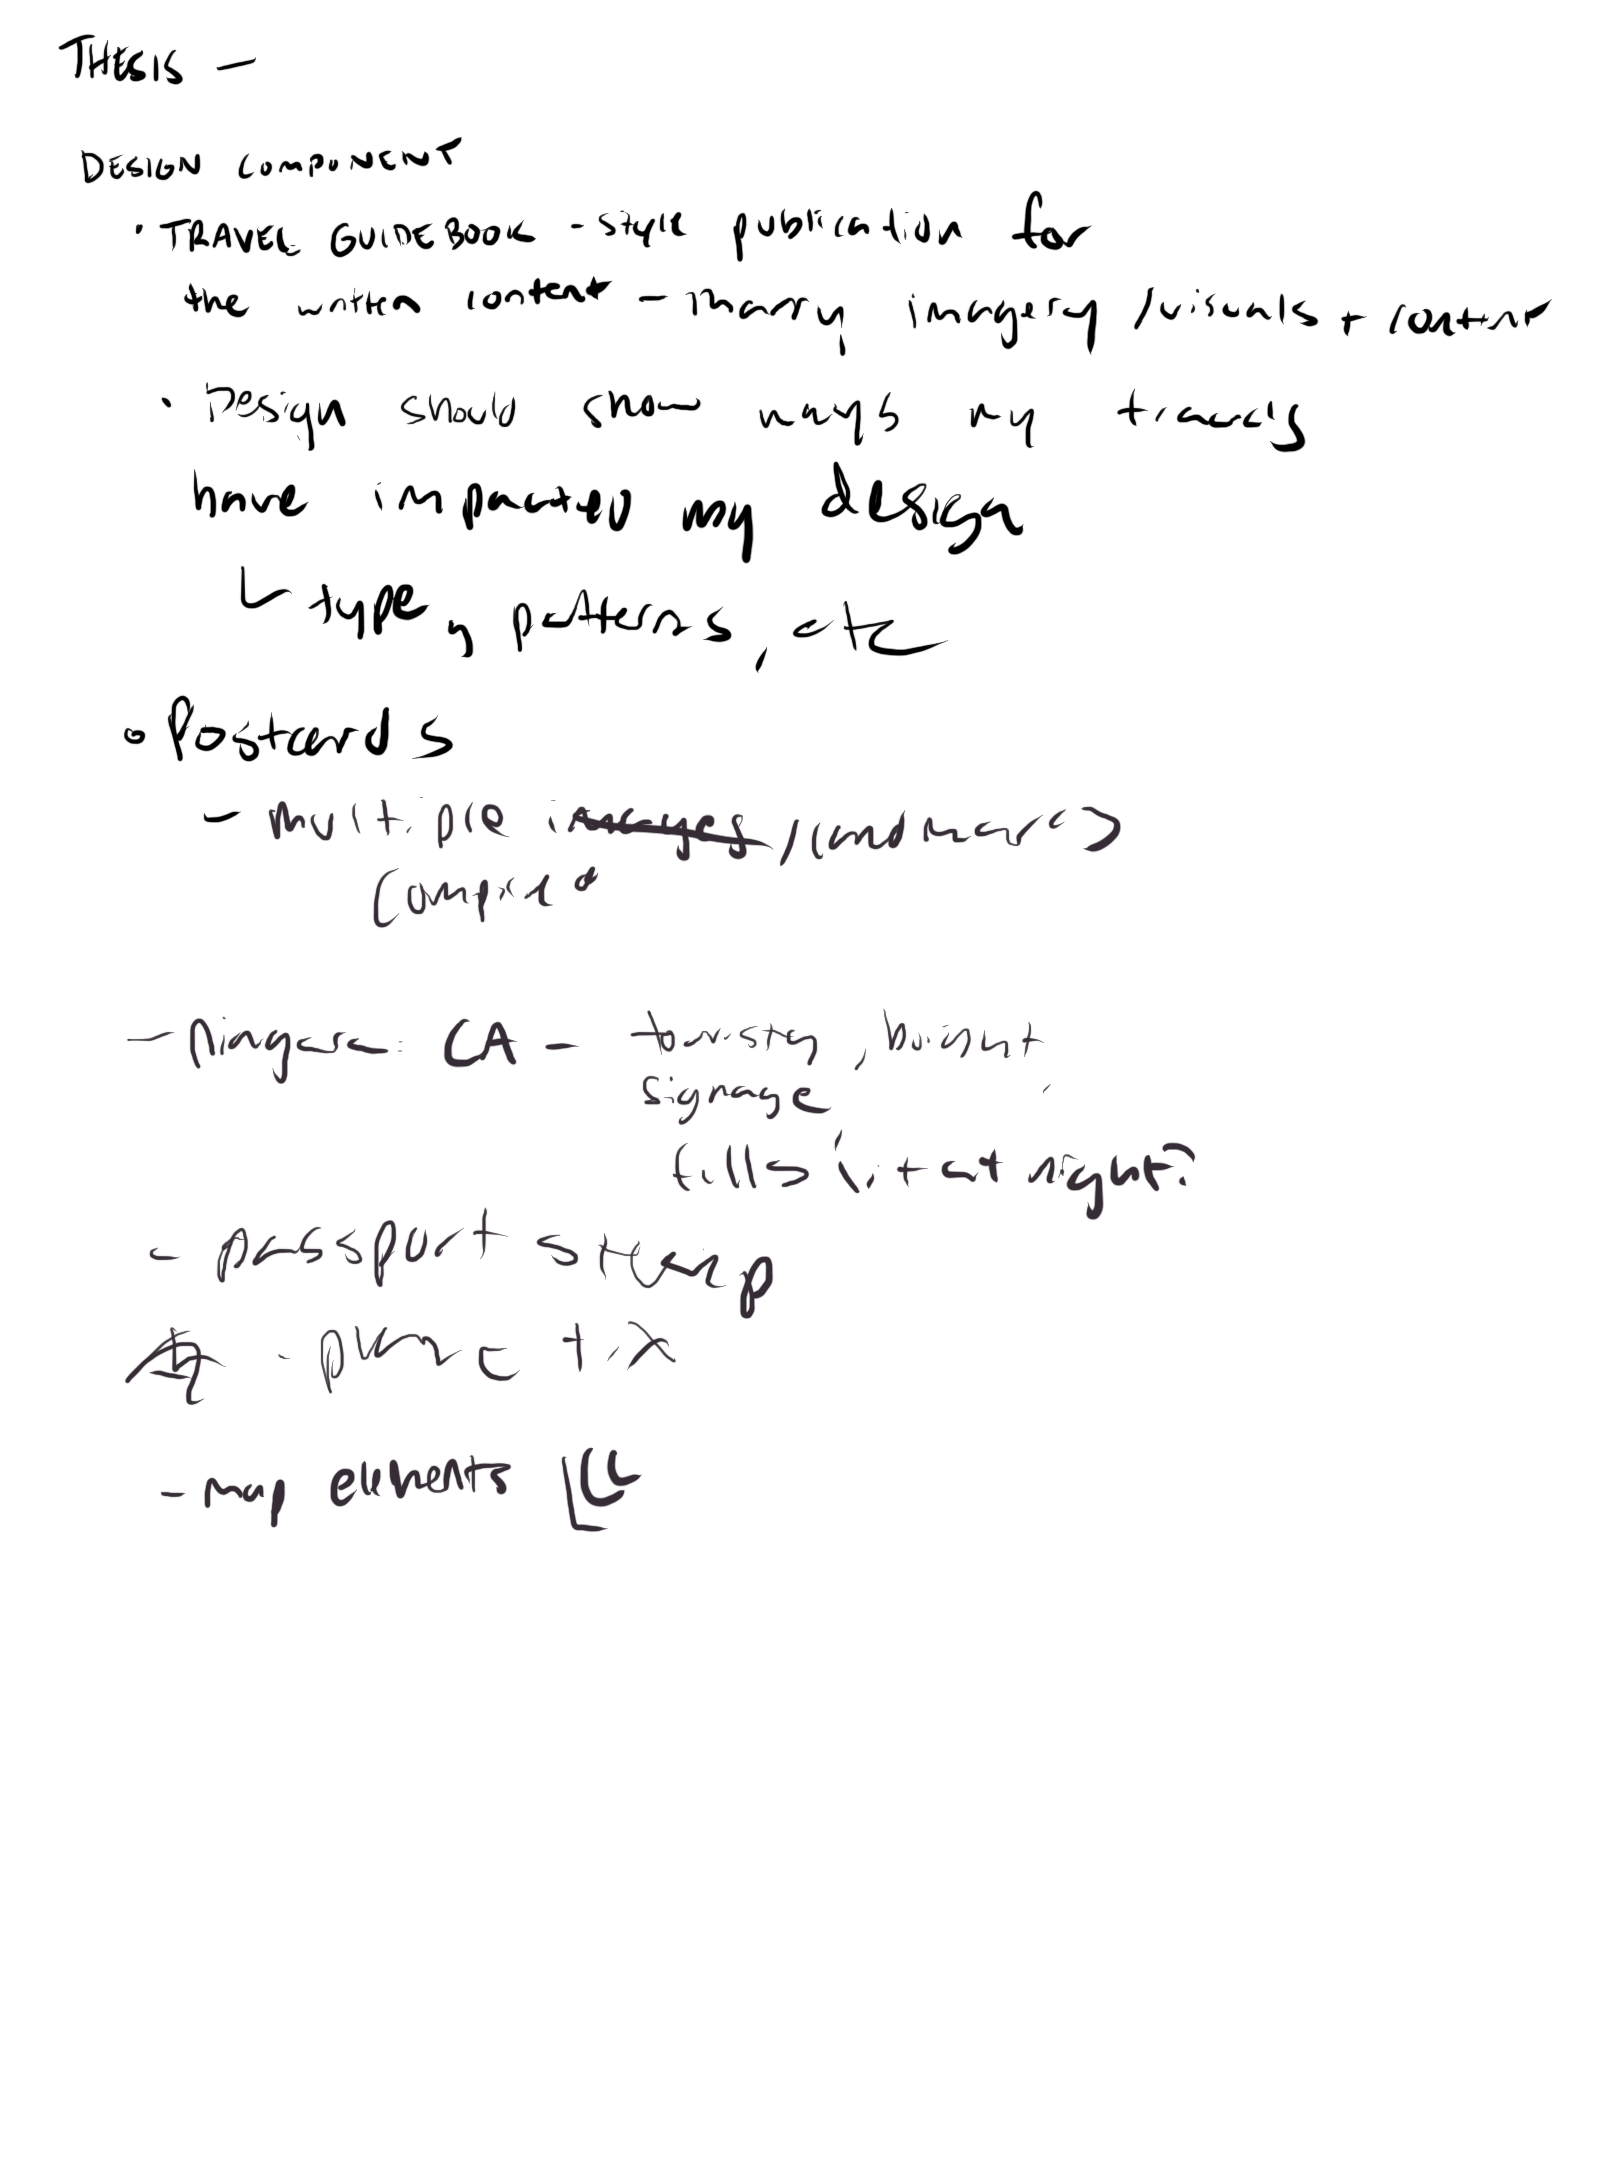 THESIS —
DESIGN COMPONENT
• TRAVEL GUIDEBOOK - style publication for
the written content - marry imagery / visuals + content
• Design should show ways my travels
have impacted my design
type, patterns, etc
• Postcards
- multiple images / landmarks
compiled
- Niagara: CA - touristy, bright
signage
falls lit at night?
- passport stamp
- plane tix
- map elements